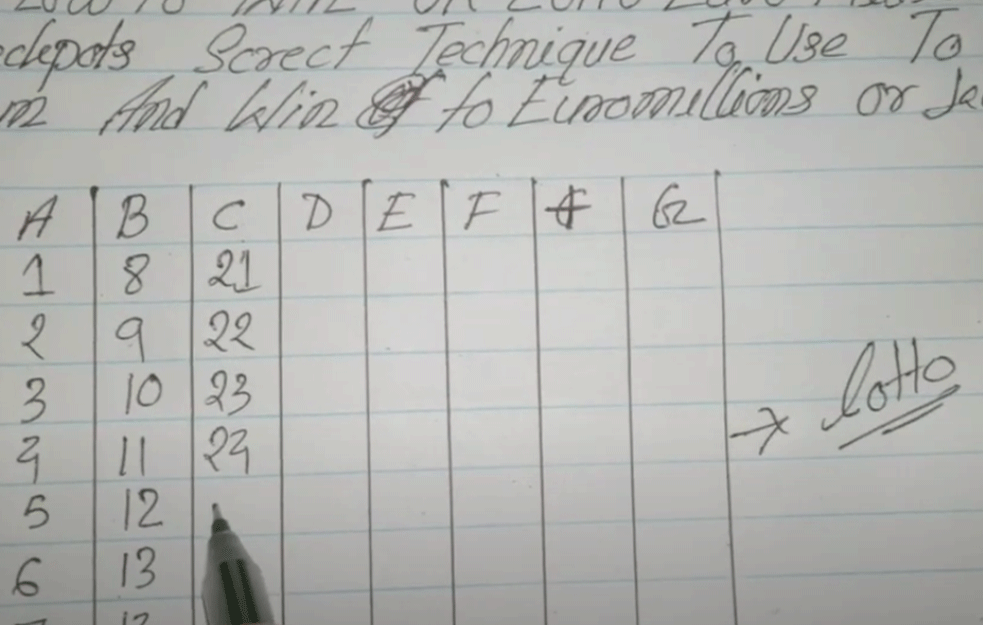 UK Lotto
ckpots Screct Technique To Use To
And Win to Euromillions or Ja
A B C D E F F G
1 8 21
2 9 22
3 10 23
4 11 24
→ lotto
5 12
6 13